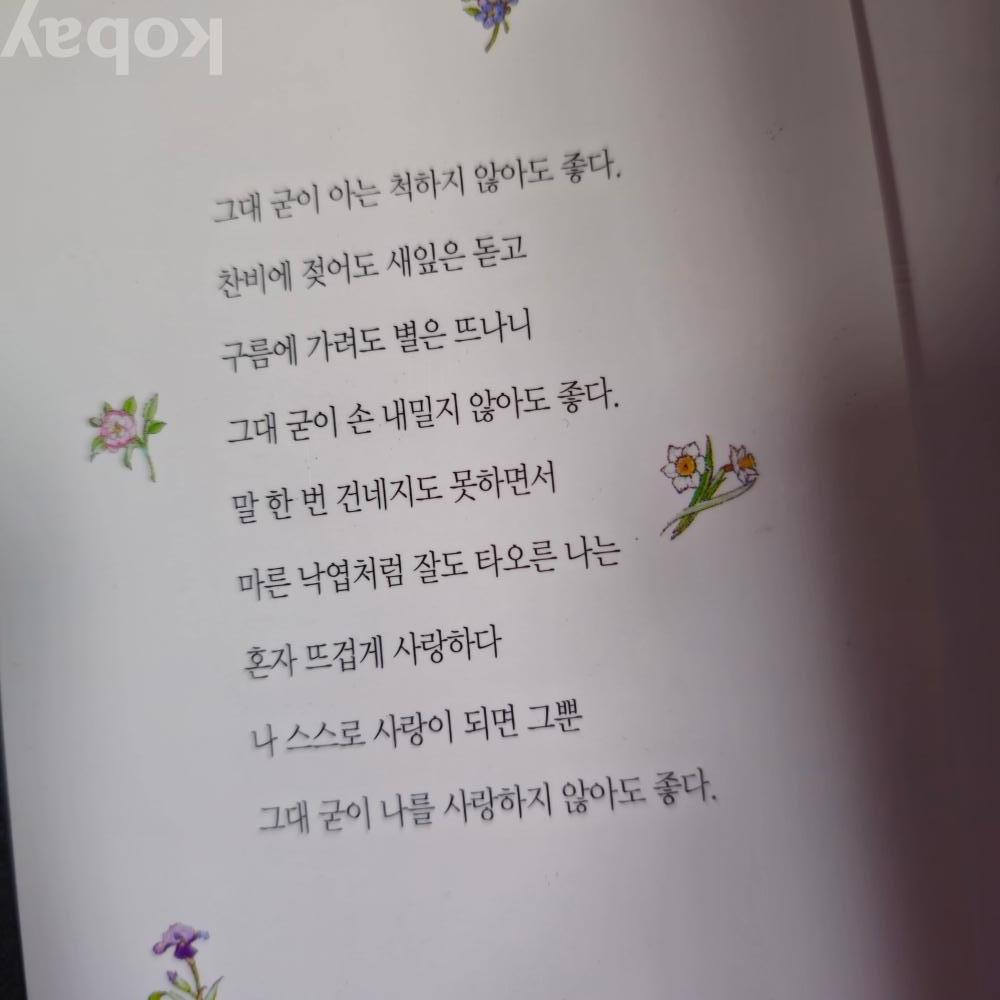 kobay
그대 굳이 아는 척하지 않아도 좋다.
찬비에 젖어도 새잎은 돋고
구름에 가려도 별은 뜨나니
그대 굳이 손 내밀지 않아도 좋다.
말 한 번 건네지도 못하면서
마른 낙엽처럼 잘도 타오른 나는
혼자 뜨겁게 사랑하다
나 스스로 사랑이 되면 그뿐
그대 굳이 나를 사랑하지 않아도 좋다.